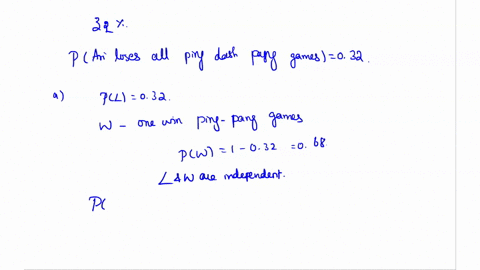 32 %.
P(Ari loses all ping dash papg games) = 0.32.
a) P(L) = 0.32.
W - one win ping-pang games
P(W) = 1 - 0.32 = 0.68.
L & W are independent.
P(